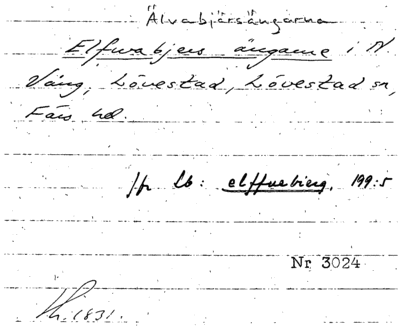 Älvabjärsängarna
Elfwabjers ängarne i N
Vång, Lövestad, Lövestad sn,
Färs hd.
jfr Lb: elffuebierg, 199:5
Nr 3024
1831.